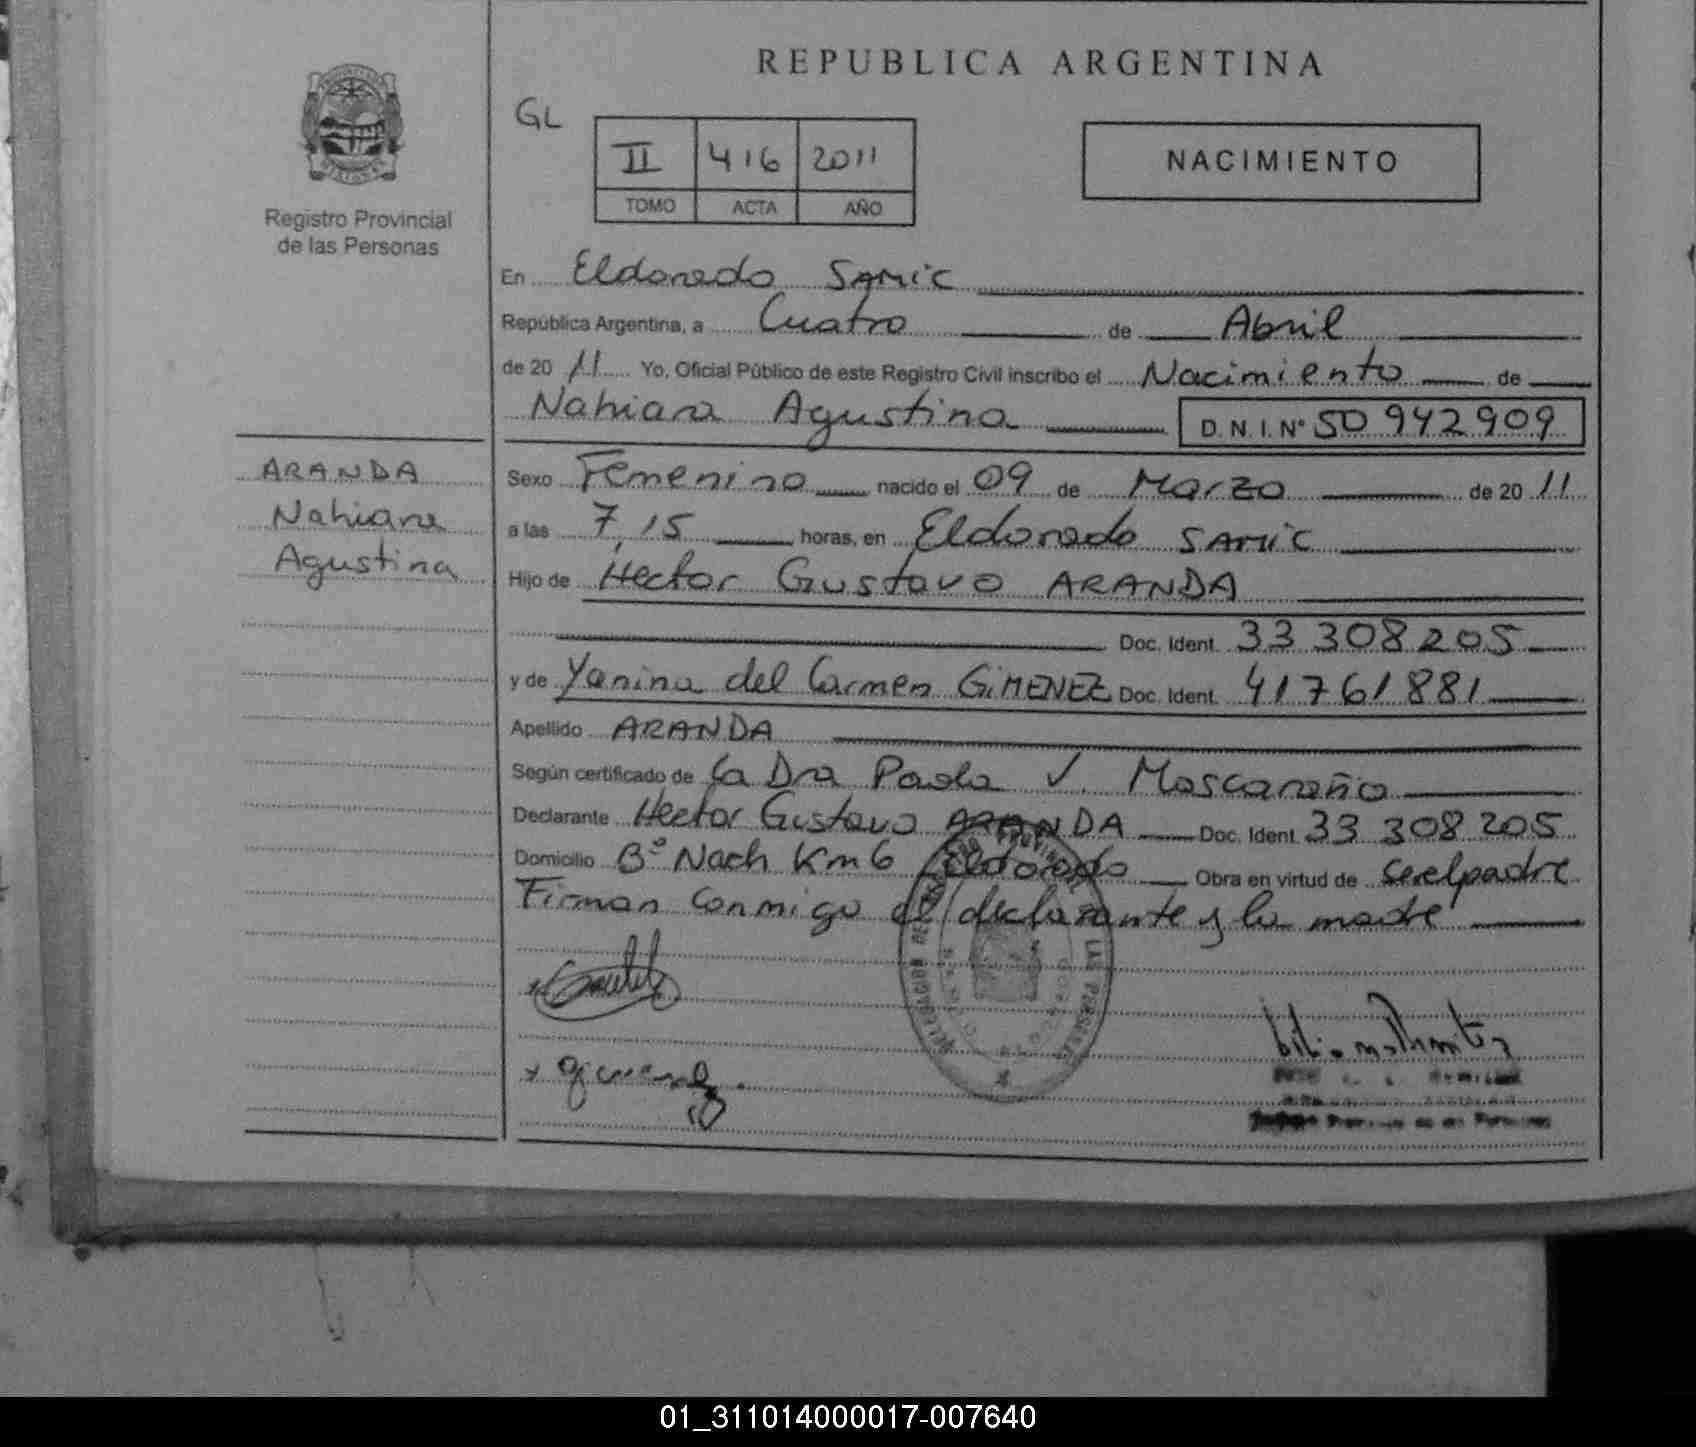 REPUBLICA ARGENTINA
GL
II 416 2011
TOMO ACTA AÑO
NACIMIENTO
Registro Provincial
de las Personas
En Eldorado SAMIC
República Argentina, a Cuatro de Abril
de 20 11 Yo, Oficial Público de este Registro Civil inscribo el Nacimiento de
Nahiara Agustina D.N.I. Nº 50 942 909
ARANDA
Nahiara
Agustina
Sexo Femenino nacido el 09 de Marzo de 20 11
a las 7,15 horas, en Eldorado SAMIC
Hijo de Hector Gustavo ARANDA
Doc. Ident. 33 308 205
y de Yanina del Carmen GIMENEZ Doc. Ident. 41761881
Apellido ARANDA
Según certificado de la Dra Paola V. Moscareño
Declarante Hector Gustavo ARANDA Doc. Ident. 33 308 205
Domicilio Bº Nach Km 6 Eldorado Obra en virtud de ser el padre
Firman conmigo el declarante y la madre
DELEGACION LAS PERSONAS
x Gimenez
01_311014000017-007640